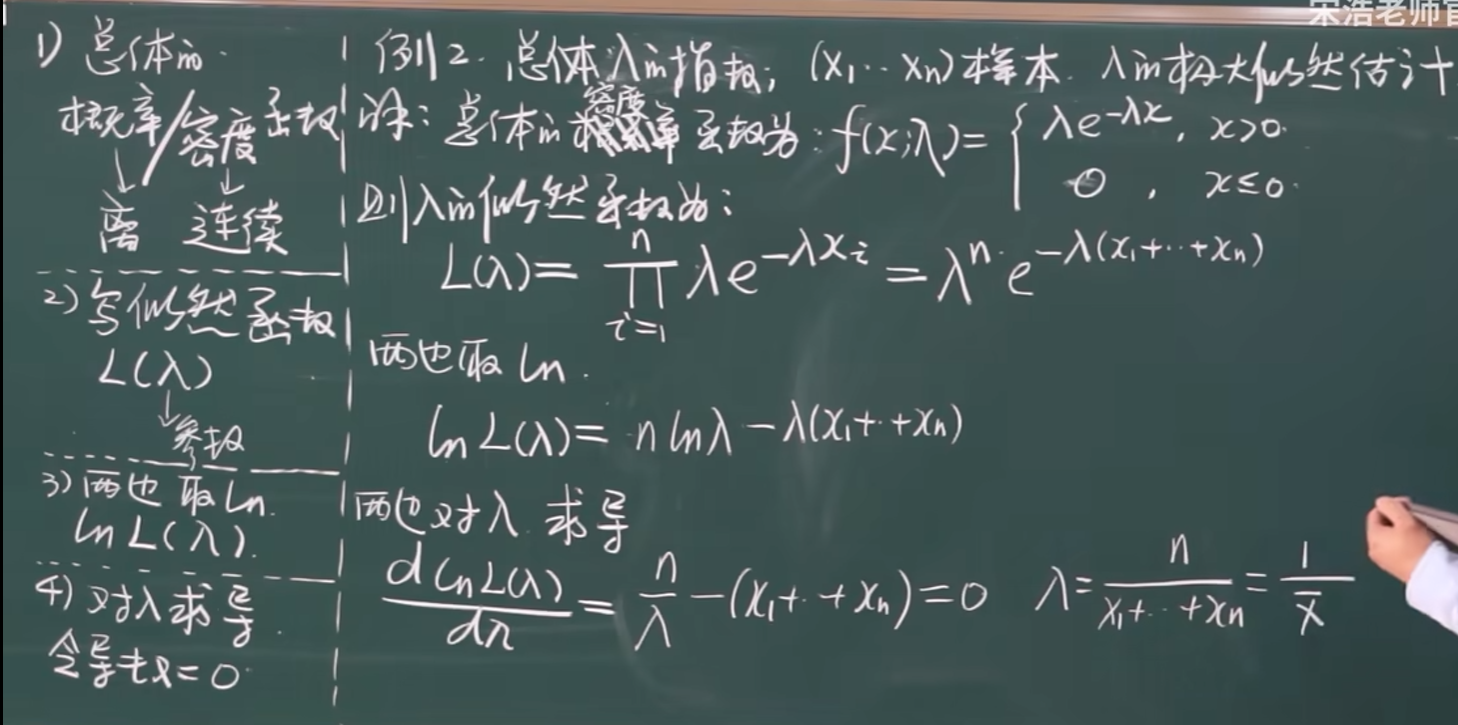 宋浩老师官
1) 总体的
概率/密度函数
↓ ↓
离 连续
2) 写似然函数
L(λ)
↓
参数
3) 两边取ln.
ln L(λ).
4) 对λ求导.
令导数=0
例2. 总体λ的指数, (x₁…xₙ)样本. λ的极大似然估计
解: 总体的密度函数为: f(x;λ)= { λe^{-λx}, x>0.
0, x≤0.
则λ的似然函数为:
L(λ)= ∏_{i=1}^{n} λe^{-λx_i} = λⁿ·e^{-λ(x₁+…+xₙ)}
两边取ln.
ln L(λ)= n lnλ -λ(x₁+…+xₙ)
两边对λ求导
d ln L(λ)/dλ = n/λ -(x₁+…+xₙ)=0 λ= n/(x₁+…+xₙ) = 1/x̄